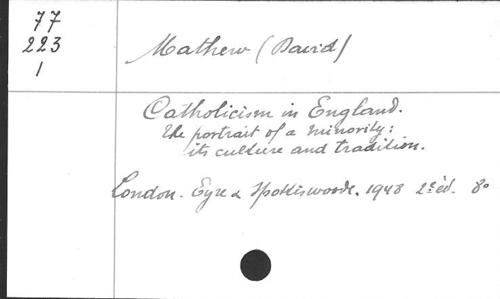 77
223
1
Mathew (David)
Catholicism in England.
The portrait of a minority:
its culture and tradition.
London. Eyre & Spottiswoode. 1948 2e éd. 8o